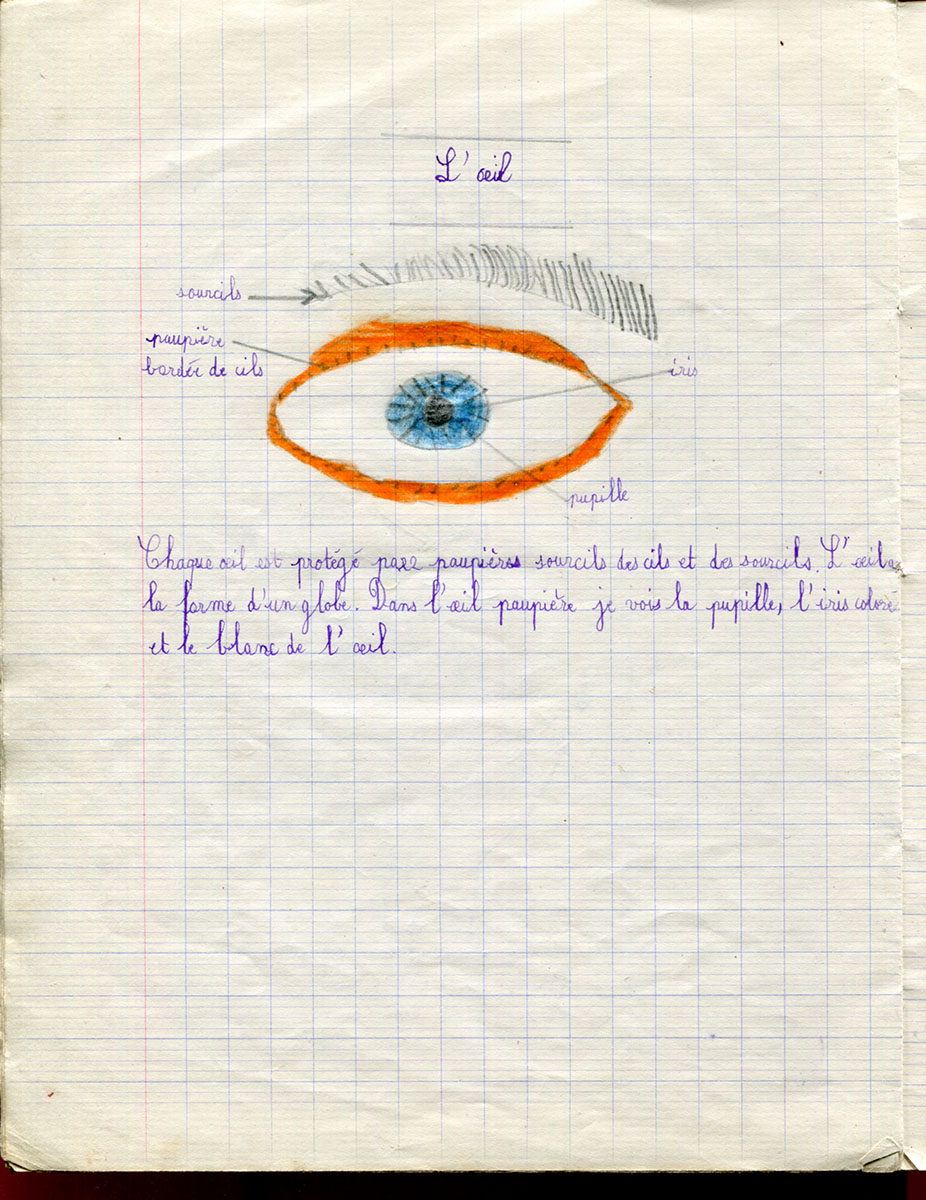 L'œil
sourcils
paupière
bordée de cils
iris
pupille
Chaque œil est protégé par 2 paupières sourcils des cils et des sourcils. L'œil a
la forme d'un globe. Dans l'œil paupière je vois la pupille, l'iris coloré
et le blanc de l'œil.